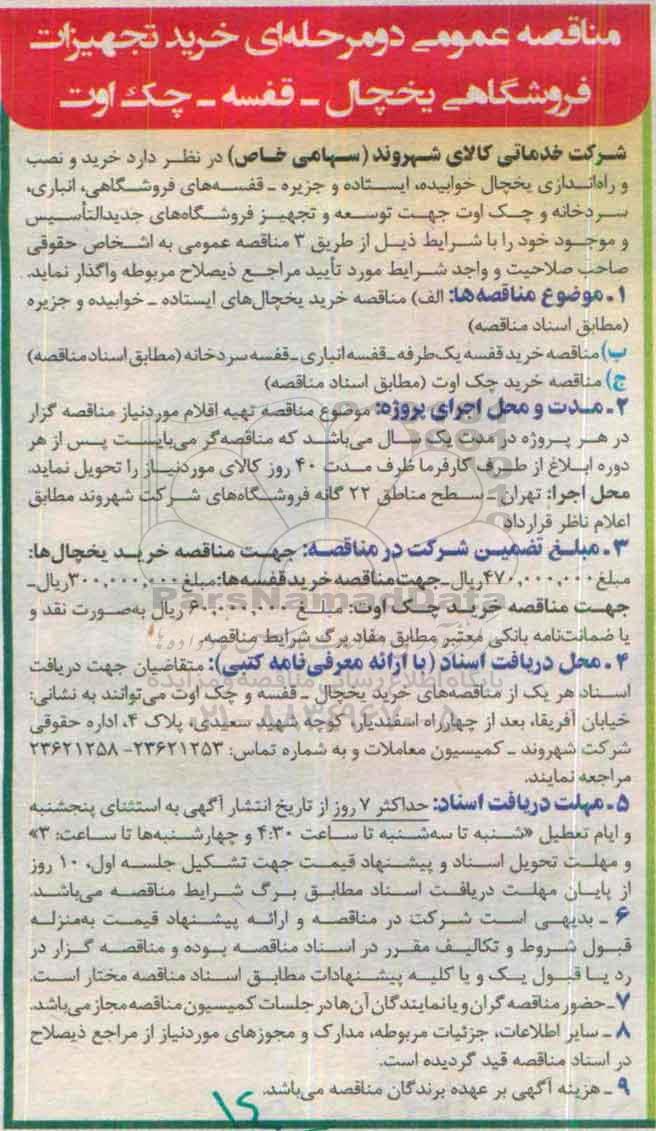 مناقصه عمومی دومرحله‌ای خرید تجهیزات
فروشگاهی یخچال ـ قفسه ـ چک اوت
شرکت خدماتی کالای شهروند (سهامی خاص) در نظر دارد خرید و نصب
و راه‌اندازی یخچال خوابیده، ایستاده و جزیره ـ قفسه‌های فروشگاهی، انباری،
سردخانه و چک اوت جهت توسعه و تجهیز فروشگاه‌های جدیدالتأسیس
و موجود خود را با شرایط ذیل از طریق ۳ مناقصه عمومی به اشخاص حقوقی
صاحب صلاحیت و واجد شرایط مورد تأیید مراجع ذیصلاح مربوطه واگذار نماید.
۱ـ موضوع مناقصه‌ها: الف) مناقصه خرید یخچال‌های ایستاده ـ خوابیده و جزیره
(مطابق اسناد مناقصه)
ب) مناقصه خرید قفسه یک‌طرفه ـ قفسه انباری ـ قفسه سردخانه (مطابق اسناد مناقصه)
ج) مناقصه خرید چک اوت (مطابق اسناد مناقصه)
۲ـ مدت و محل اجرای پروژه: موضوع مناقصه تهیه اقلام موردنیاز مناقصه گزار
در هر پروژه در مدت یک سال می‌باشد که مناقصه‌گر می‌بایست پس از هر
دوره ابلاغ از طرف کارفرما ظرف مدت ۴۰ روز کالای موردنیاز را تحویل نماید.
محل اجرا: تهران ـ سطح مناطق ۲۲ گانه فروشگاه‌های شرکت شهروند مطابق
اعلام ناظر قرارداد
۳ـ مبلغ تضمین شرکت در مناقصه: جهت مناقصه خرید یخچال‌ها:
مبلغ ۴۷۰,۰۰۰,۰۰۰ ریال ـ جهت مناقصه خرید قفسه‌ها: مبلغ ۳۰۰,۰۰۰,۰۰۰ ریال ـ
جهت مناقصه خرید چک اوت: مبلغ ۶۰,۰۰۰,۰۰۰ ریال به‌صورت نقد و
یا ضمانت‌نامه بانکی معتبر مطابق مفاد برگ شرایط مناقصه.
ParsNamadData
۴ـ محل دریافت اسناد (با ارائه معرفی‌نامه کتبی): متقاضیان جهت دریافت
اسناد هر یک از مناقصه‌های خرید یخچال ـ قفسه و چک اوت می‌توانند به نشانی:
خیابان آفریقا، بعد از چهارراه اسفندیار، کوچه شهید سعیدی، پلاک ۴، اداره حقوقی
شرکت شهروند ـ کمیسیون معاملات و به شماره تماس: ۲۳۶۲۱۲۵۳- ۲۳۶۲۱۲۵۸
مراجعه نمایند.
۵ـ مهلت دریافت اسناد: حداکثر ۷ روز از تاریخ انتشار آگهی به استثنای پنجشنبه
و ایام تعطیل «شنبه تا سه‌شنبه تا ساعت ۴:۳۰ و چهارشنبه‌ها تا ساعت: ۳»
و مهلت تحویل اسناد و پیشنهاد قیمت جهت تشکیل جلسه اول، ۱۰ روز
از پایان مهلت دریافت اسناد مطابق برگ شرایط مناقصه می‌باشد.
۶ ـ بدیهی است شرکت در مناقصه و ارائه پیشنهاد قیمت به‌منزله
قبول شروط و تکالیف مقرر در اسناد مناقصه بوده و مناقصه گزار در
رد یا قبول یک و یا کلیه پیشنهادات مطابق اسناد مناقصه مختار است.
۷ـ حضور مناقصه گران و یا نمایندگان آن‌ها در جلسات کمیسیون مناقصه مجاز می‌باشد.
۸ ـ سایر اطلاعات، جزئیات مربوطه، مدارک و مجوزهای موردنیاز از مراجع ذیصلاح
در اسناد مناقصه قید گردیده است.
۹ ـ هزینه آگهی بر عهده برندگان مناقصه می‌باشد.